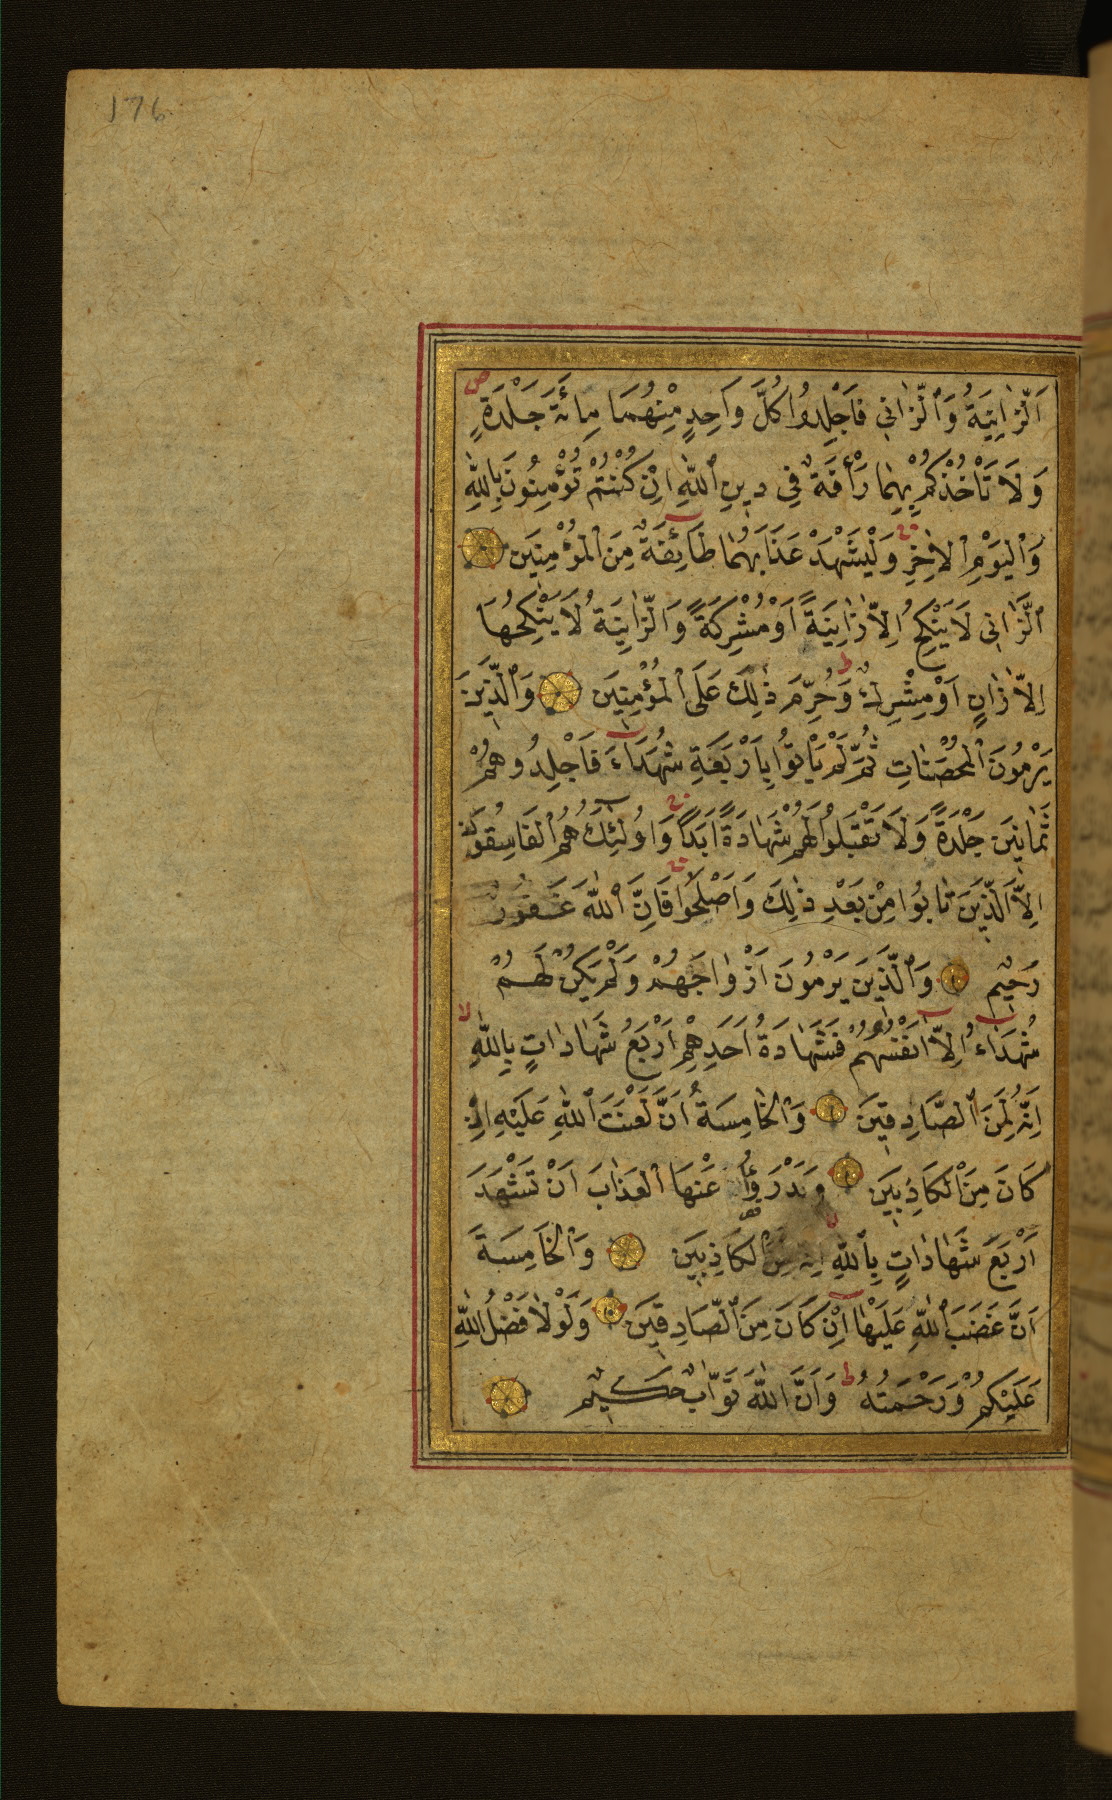 176
اَلزّٰانِيَةُ وَٱلزّٰانِي فَاَجْلِدُوا كُلَّ وَاحِدٍ مِنْهُمَا مِائَةَ جَلْدَةٍ ص
وَلَا تَأْخُذْكُمْ بِهِمٰا رَأْفَةٌ فِي دِينِ ٱللّٰهِ اِنْ كُنْتُمْ تُؤْمِنُونَ بِاللّٰهِ
وَٱلْيَوْمِ ٱلْاٰخِرِ ج وَلْيَشْهَدْ عَذَابَهُمٰا طَائِفَةٌ مِنَ ٱلْمُؤْمِنِينَ
ٱلزَّانِي لَا يَنْكِحُ اِلاّٰ زٰانِيَةً اَوْ مُشْرِكَةً وَٱلزّٰانِيَةُ لَا يَنْكِحُهَا
اِلاّٰ زٰانٍ اَوْ مُشْرِكٌ ط وَحُرِّمَ ذٰلِكَ عَلَى ٱلْمُؤْمِنِينَ وَٱلَّذِينَ
يَرْمُونَ ٱلْمُحْصَنٰاتِ ثُمَّ لَمْ يَأْتُوا بِاَرْبَعَةِ شُهَدَاءَ فَاجْلِدُوهُمْ
ثَمٰانِينَ جَلْدَةً وَلَا تَقْبَلُوا لَهُمْ شَهَادَةً اَبَدًا ج وَاُولٰئِكَ هُمُ ٱلْفَاسِقُونَ
اِلاَّ ٱلَّذِينَ تٰابُوا مِنْ بَعْدِ ذٰلِكَ وَاَصْلَحُوا ج فَاِنَّ ٱللّٰهَ غَفُورٌ
رَحِيمٌ وَٱلَّذِينَ يَرْمُونَ اَزْوٰاجَهُمْ وَلَمْ يَكُنْ لَهُمْ
شُهَدَاءُ اِلاّٰ اَنْفُسُهُمْ فَشَهَادَةُ اَحَدِهِمْ اَرْبَعُ شَهَادَاتٍ بِاللّٰهِ لا
اِنَّهُ لَمِنَ ٱلصَّادِقِينَ وَٱلْخٰامِسَةُ اَنَّ لَعْنَتَ ٱللّٰهِ عَلَيْهِ اِنْ
كَانَ مِنَ ٱلْكَاذِبِينَ وَيَدْرَؤُا عَنْهَا ٱلْعَذٰابَ اَنْ تَشْهَدَ
اَرْبَعَ شَهٰادٰاتٍ بِاللّٰهِ لا اِنَّهُ لَمِنَ ٱلْكَاذِبِينَ وَٱلْخَامِسَةَ
اَنَّ غَضَبَ ٱللّٰهِ عَلَيْهٰا اِنْ كَانَ مِنَ ٱلصَّادِقِينَ وَلَوْلٰا فَضْلُ ٱللّٰهِ
عَلَيْكُمْ وَرَحْمَتُهُ ط وَاَنَّ ٱللّٰهَ تَوَّابٌ حَكِيمٌ